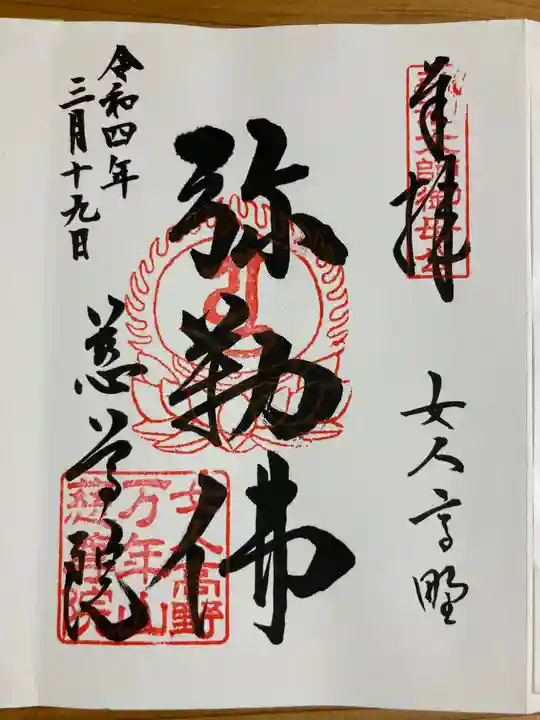 奉拝
弘法大師御母公
女人高野
弥勒佛
令和四年
三月十九日
慈尊院
女人高野
万年山
慈尊院